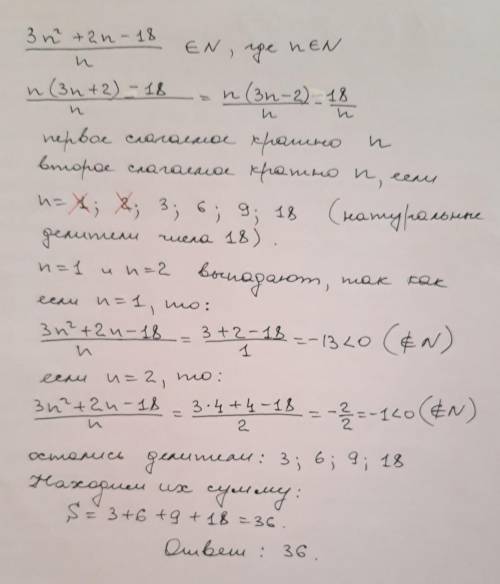 (3n² + 2n - 18)/n ∈ N, где n ∈ N
(n(3n+2) - 18)/n = n(3n-2)/n - 18/n
первое слагаемое кратно n
второе слагаемое кратно n, если
n = 1; 2; 3; 6; 9; 18 (натуральные
делители числа 18).
n=1 и n=2 выпадают, так как
если n=1, то:
(3n²+2n-18)/n = (3+2-18)/1 = -13<0 (∉N)
если n=2, то:
(3n²+2n-18)/n = (3·4+4-18)/2 = -2/2 = -1<0 (∉N)
остались делители: 3; 6; 9; 18
Находим их сумму:
S = 3+6+9+18 = 36.
Ответ: 36.